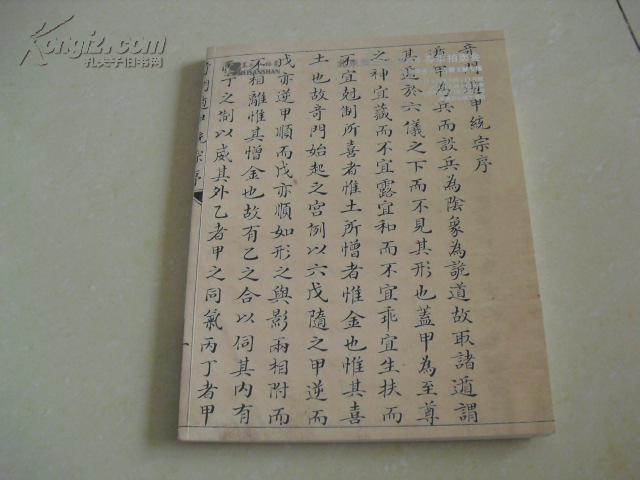 奇門遁甲統宗序
遁甲為兵而設兵為陰象為詭道故取諸遁謂
其遁於六儀之下而不見其形也蓋甲為至尊
之神宜藏而不宜露宜和而不宜乖宜生扶而
不宜尅制所喜者惟土所憎者惟金也惟其喜
土也故奇門始起之宮例以六戊隨之甲逆而
戊亦逆甲順而戊亦順如形之與影兩相附而
不相離惟其憎金也故有乙之合以伺其內有
丁之制以威其外乙者甲之同氣丙丁者甲
奇門遁甲統宗序
Kongfz.com
孔夫子旧书网